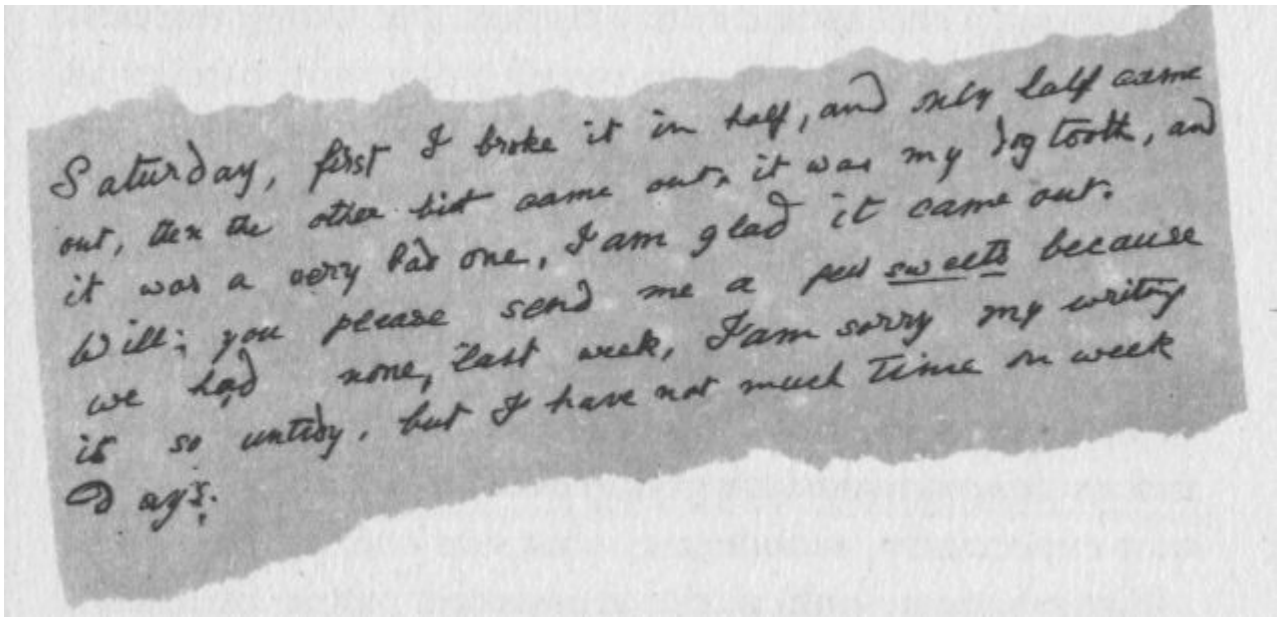 Saturday, first I broke it in half, and only half came
out, then the other bit came out, it was my dog tooth, and
it was a very bad one, I am glad it came out.
Will; you please send me a few sweets because
we had none, last week, I am sorry my writing
is so untidy, but I have not much time on week
Days.